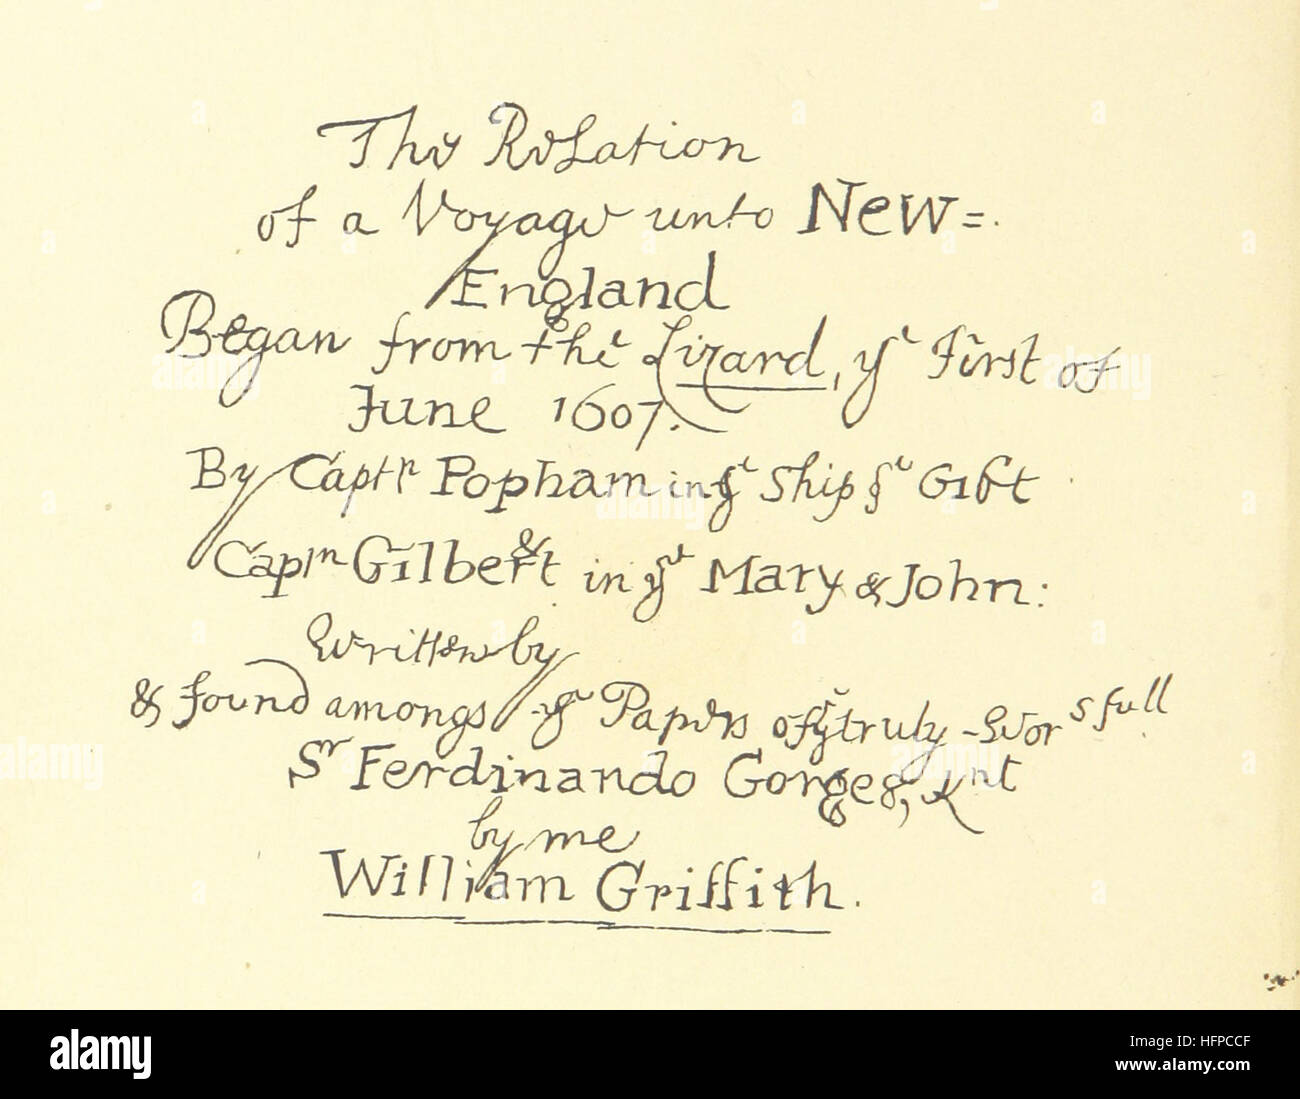 The Relation
of a Voyage unto New=
England
Began from the Lizard, ye First of
June 1607.
By Captn Popham in ye ship ye Gift
&
Captn Gilbert in ye Mary & John:
Written by
& found amongs ye Papers of ye truly Worsfull
Sr Ferdinando Gorges, Knt
by me
William Griffith.
alamy
Image ID: HFPCCF
www.alamy.com